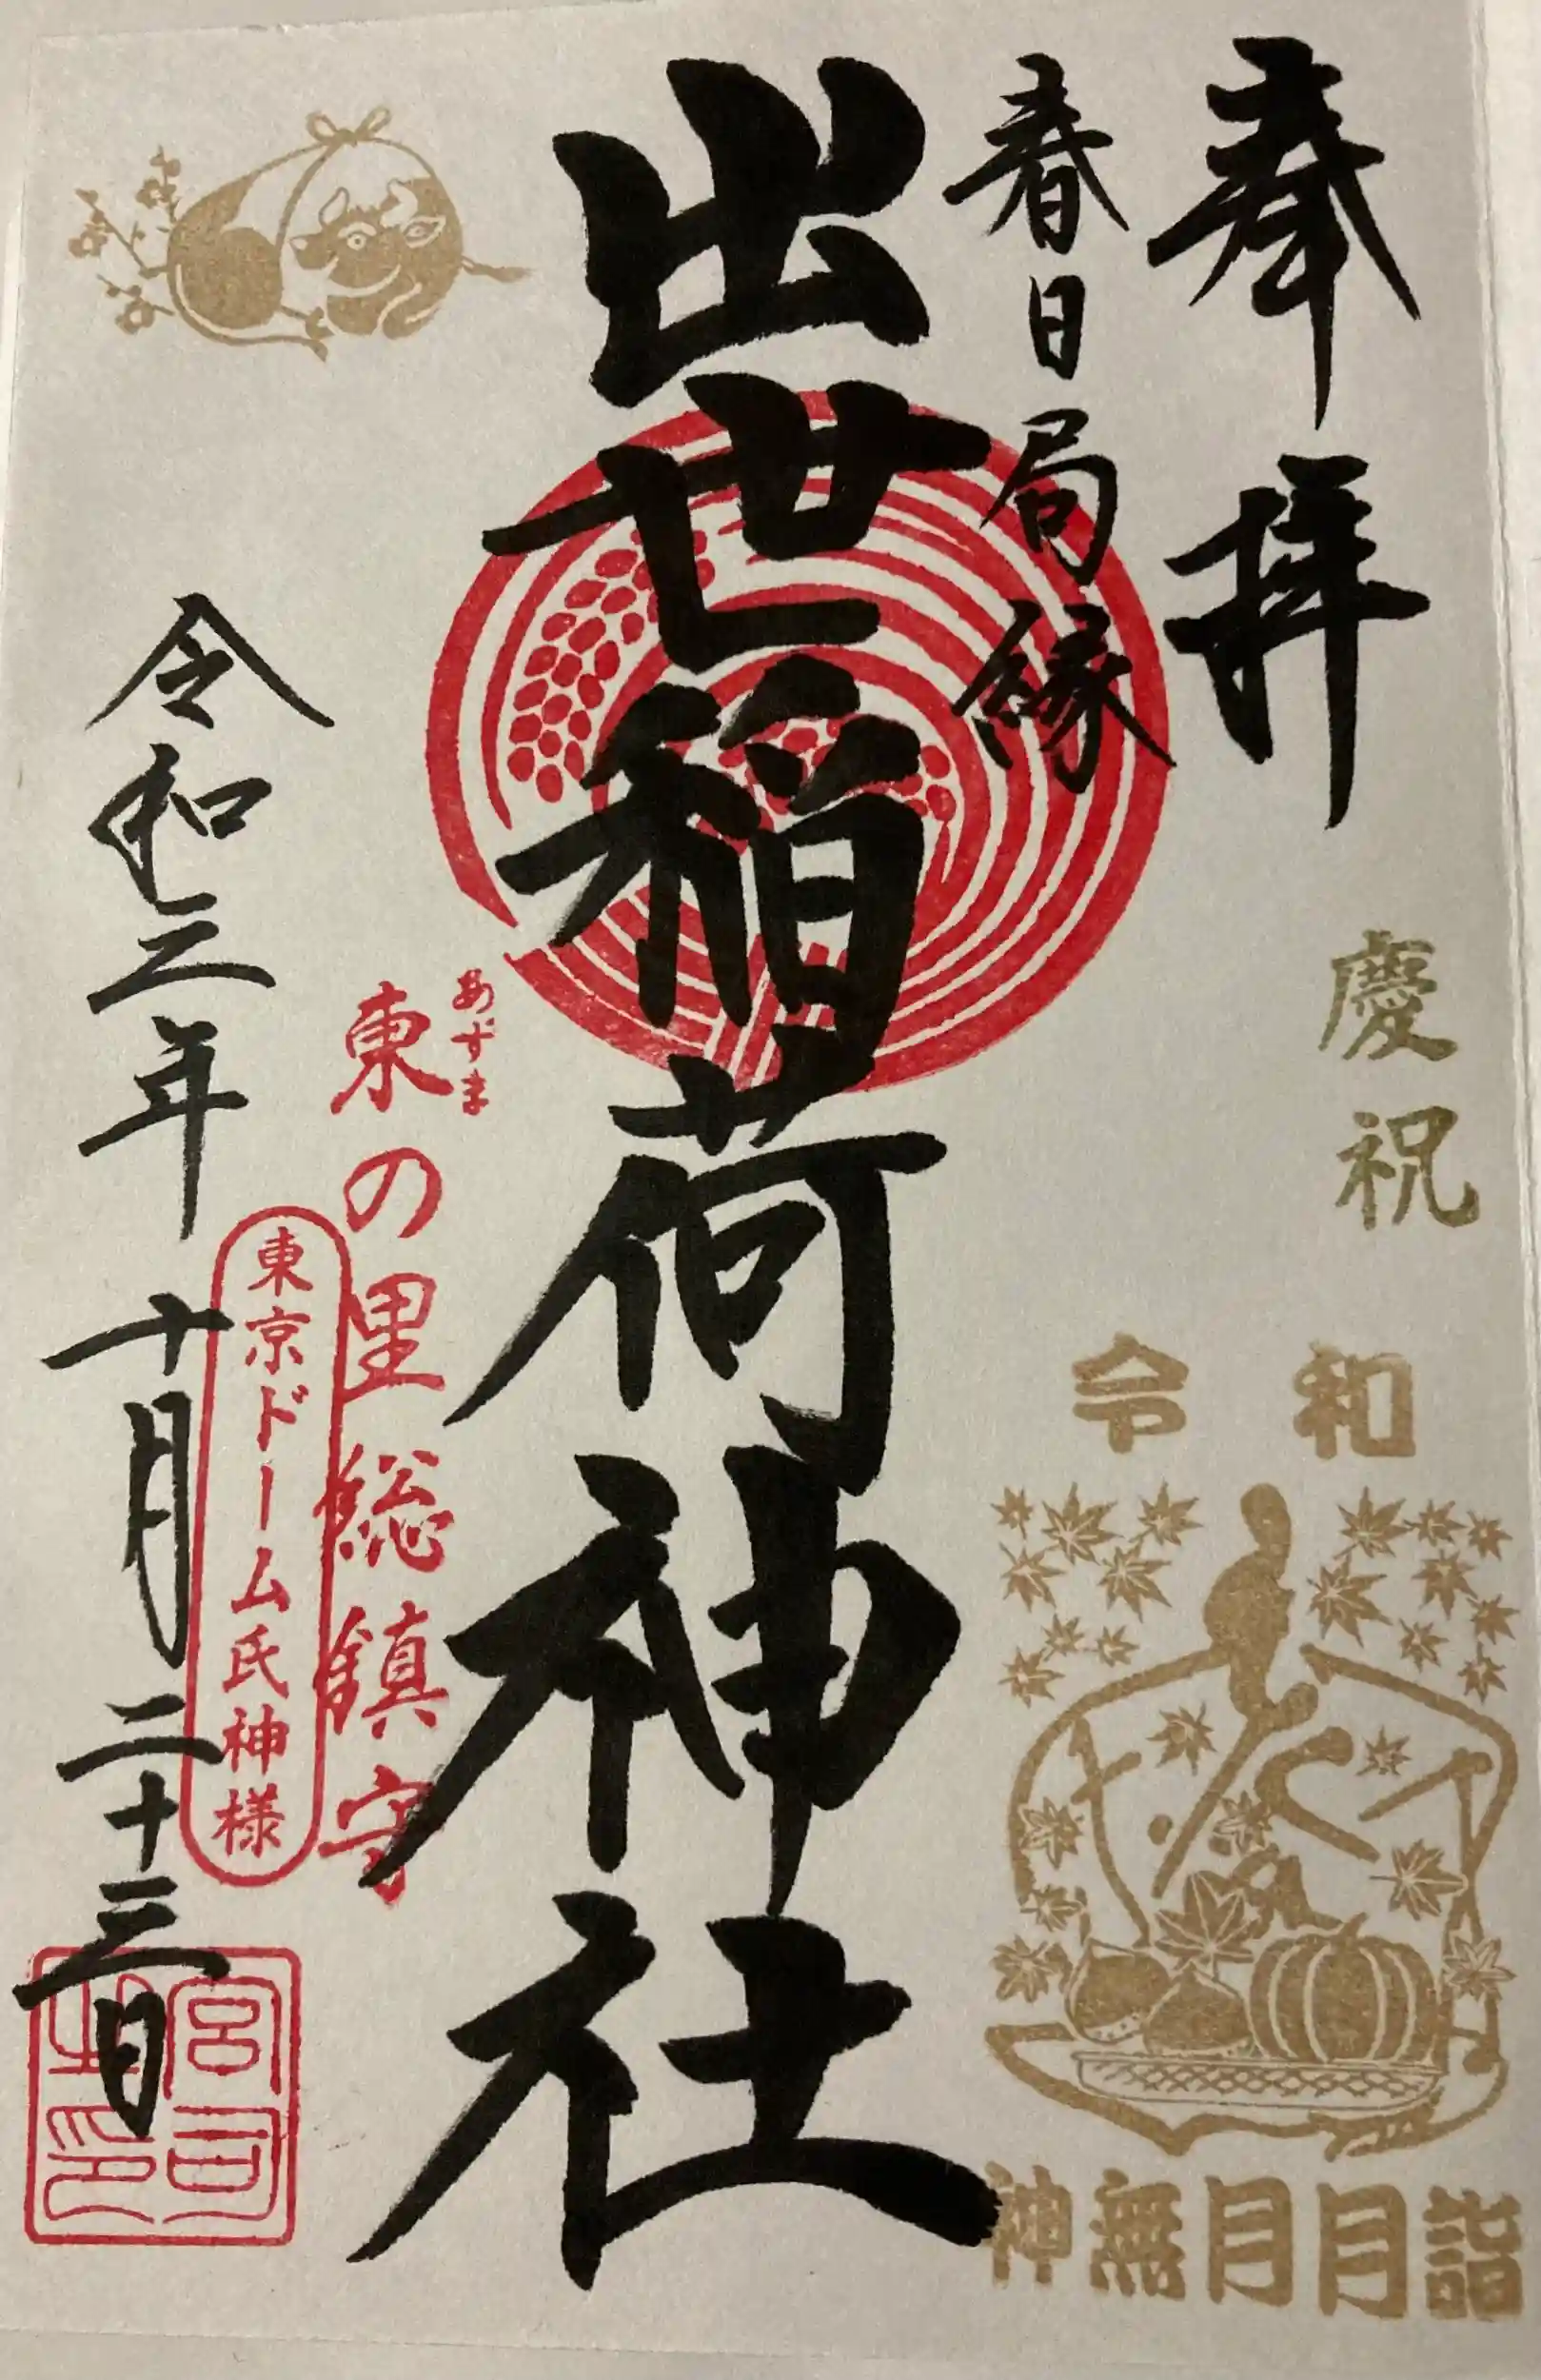 奉拝
慶祝
令和
神無月月詣
春日局縁
出世稲荷神社
あずま
東の里総鎮守
東京ドーム氏神様
令和三年十月二十三日
宮司
之印